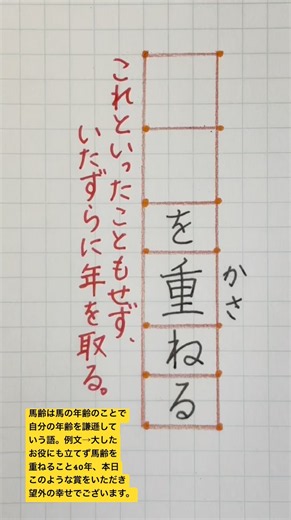 を重ねる
かさ
これといったこともせず、
いたずらに年を取る。
馬齢は馬の年齢のことで
自分の年齢を謙遜して
いう語。例文→大した
お役にも立てず馬齢を
重ねること40年、本日
このような賞をいただき
望外の幸せでございます。